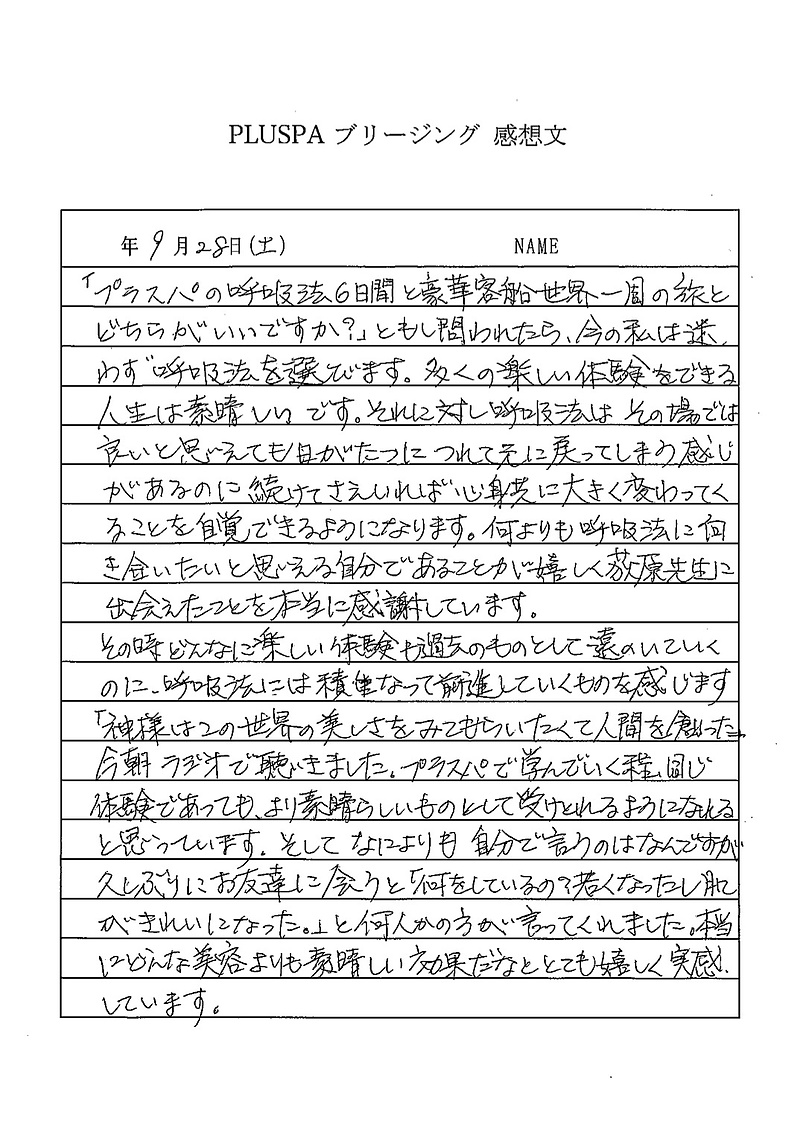 PLUSPA ブリージング 感想文
年 9 月 28日(土) NAME
「プラスパの呼吸法6日間と豪華客船世界一周の旅と
どちらがいいですか?」ともし問われたら、今の私は迷
わず呼吸法を選びます。多くの楽しい体験をできる
人生は素晴しいです。それに対し呼吸法はその場では
良いと思えても日がたつにつれて元に戻ってしまう感じ
があるのに続けてさえいれば心身共に大きく変わってく
ることを自覚できるようになります。何よりも呼吸法に向
き合いたいと思える自分であることが嬉しく荻原先生に
出会えたことを本当に感謝しています。
その時どんなに楽しい体験も過去のものとして遠のいていく
のに、呼吸法には積重なって前進していくものを感じます
「神様はこの世界の美しさをみてもらいたくて人間を創った」
今朝ラジオで聴きました。プラスパで学んでいく程、同じ
体験であっても、より素晴らしいものとして受けとれるようになれる
と思っています。そしてなによりも自分で言うのはなんですが
久しぶりにお友達に会うと「何をしているの?若くなったし肌
がきれいになった。」と何人かの方が言ってくれました。本当
にどんな美容よりも素晴しい効果だなととても嬉しく実感
しています。